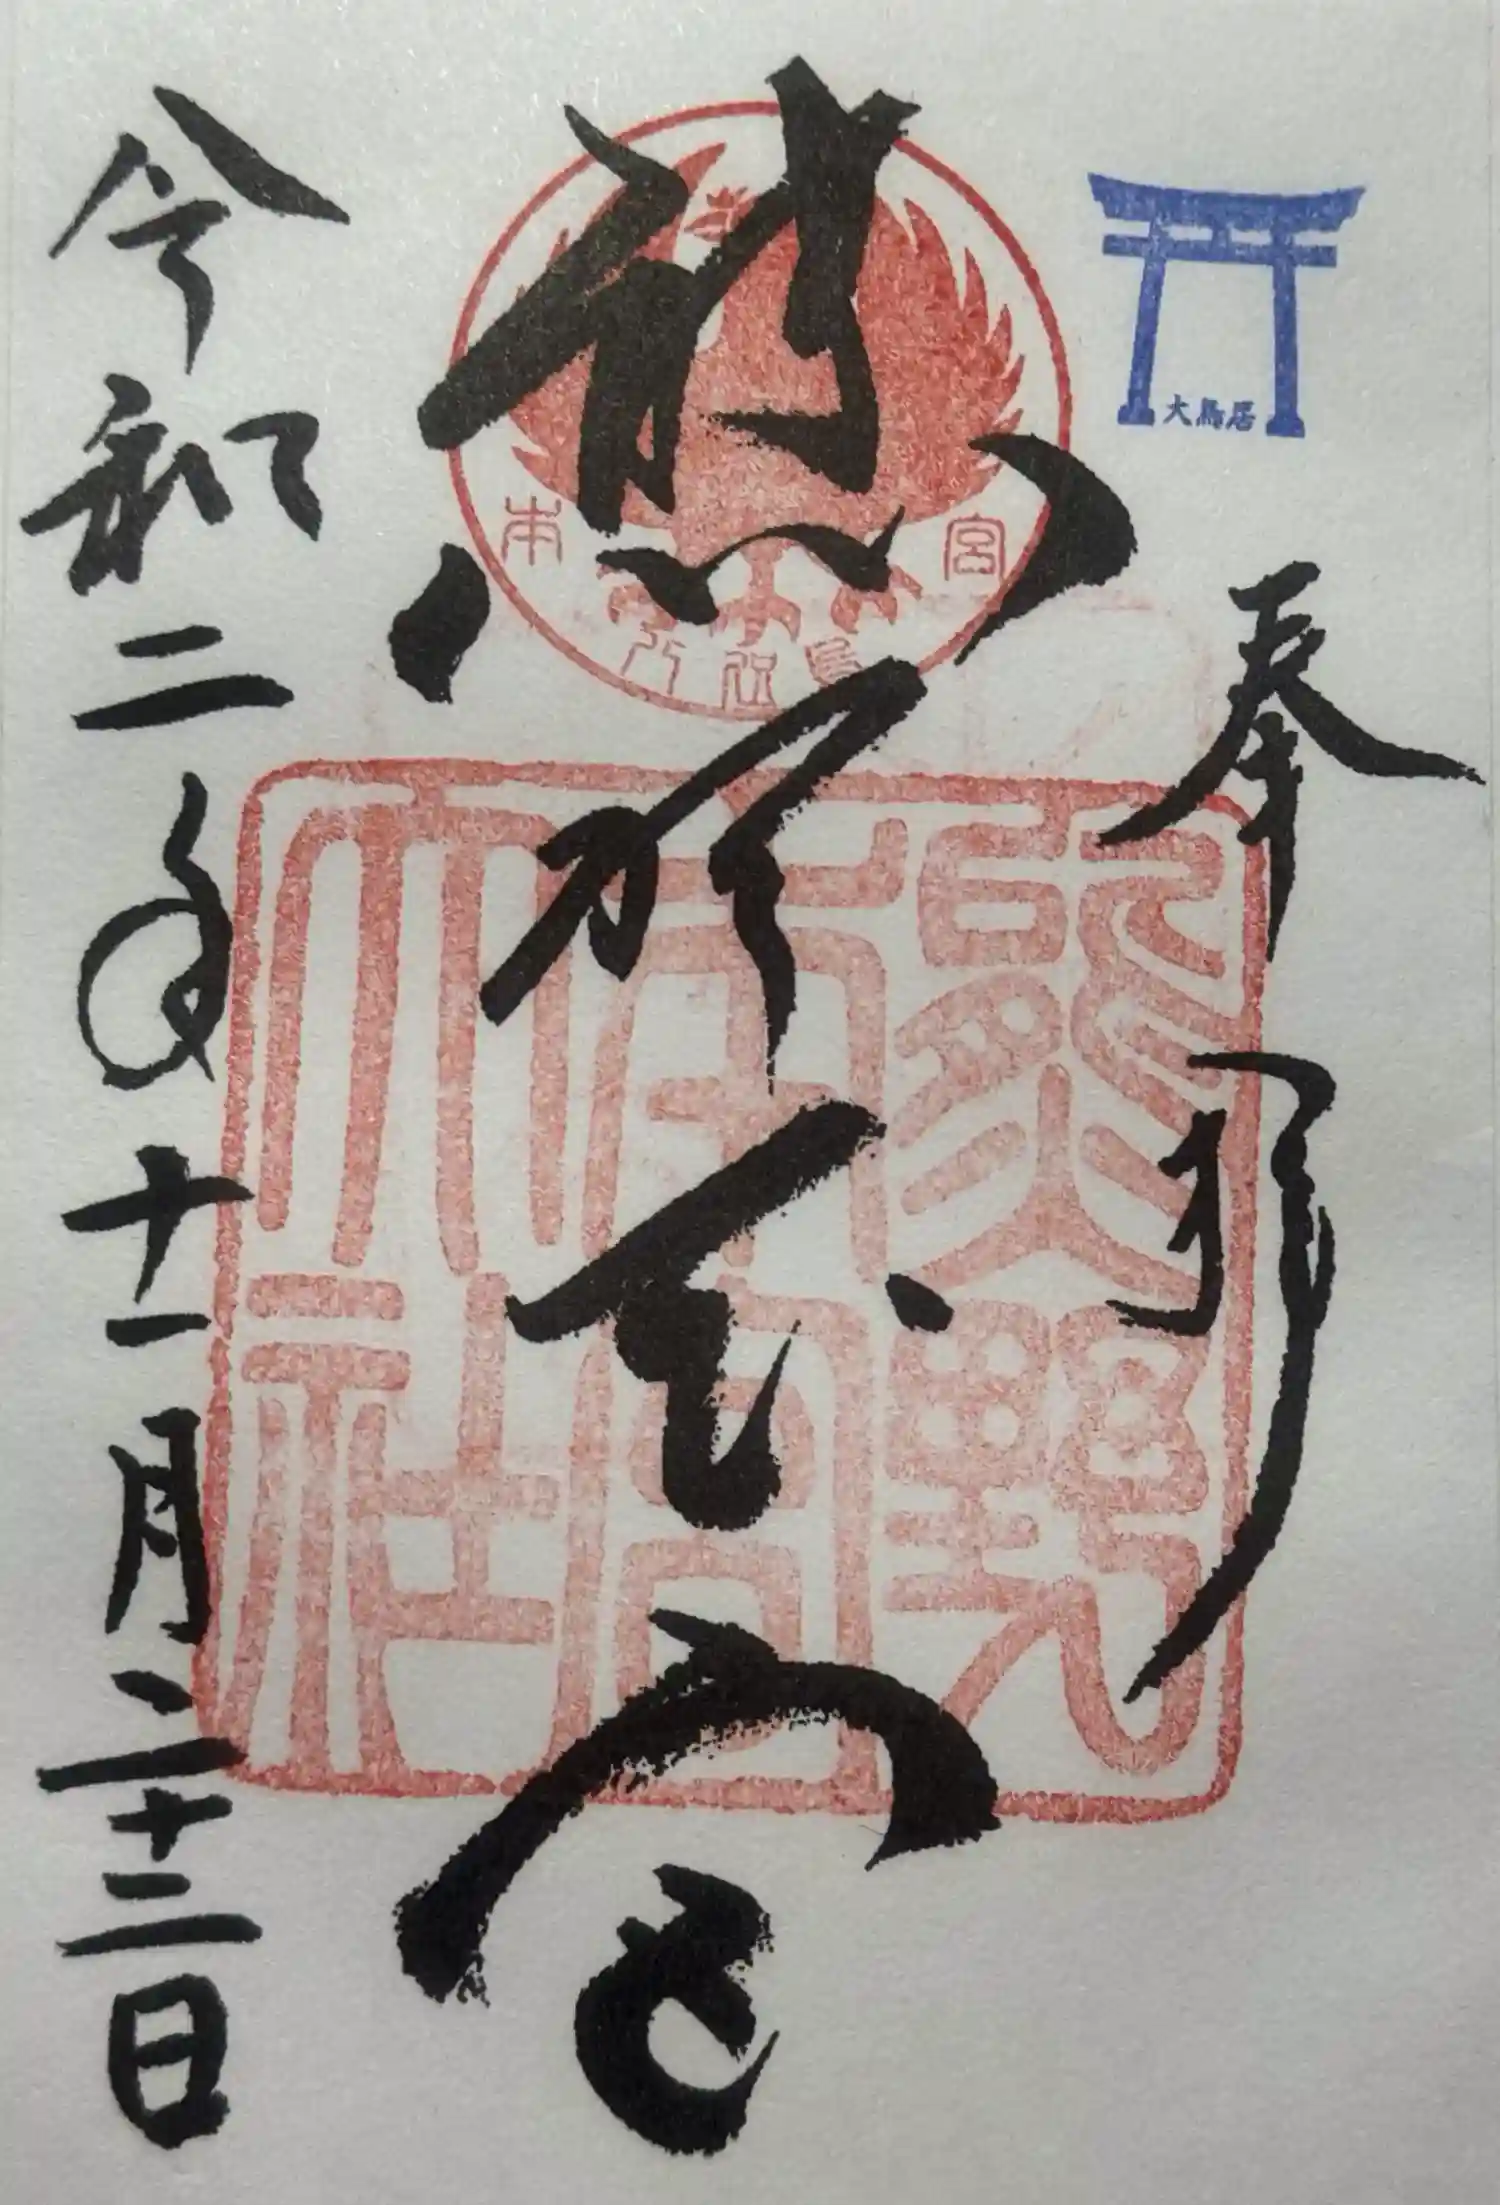 大鳥居
奉拝
熊野本宮
本宮
八咫烏
熊野
本宮
大社
令和二年十一月二十二日